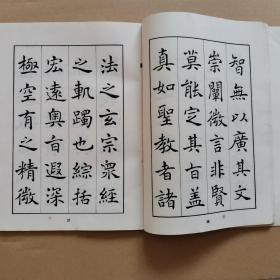 智無以廣其文
崇闡微言非賢
莫能定其旨蓋
真如聖教者諸
法之玄宗衆經
之軌躅也綜括
宏遠奧旨遐深
極空有之精微